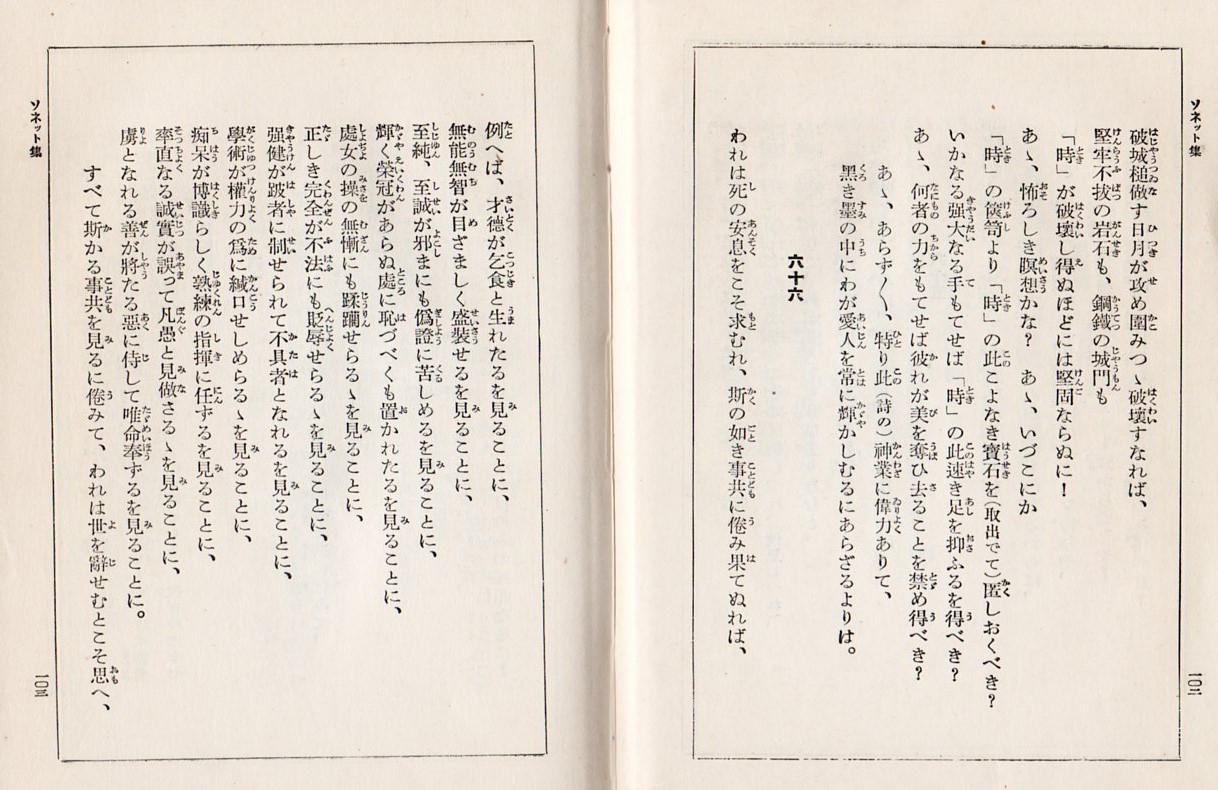 ソネット集
破城槌做す日月が攻め圍みつゝ破壞すなれば、
堅牢不拔の岩石も、鋼鐵の城門も
「時」が破壞し得ぬほどには堅固ならぬに！
あゝ、怖ろしき瞑想かな？　あゝ、いづこにか
「時」の篋笥より「時」の此こよなき寶石を（取出でて）匿しおくべき？
いかなる强大なる手もてせば「時」の此速き足を抑ふるを得べき？
あゝ、何者の力をもてせば彼れが美を奪ひ去ることを禁め得べき？
あゝ、あらず〳〵、特り此（詩の）神業に偉力ありて、
黑き墨の中にわが愛人を常に輝かしむるにあらざるよりは。
六十六
われは死の安息をこそ求むれ、斯の如き事共に倦み果てぬれば、
一〇二
例へば、才德が乞食と生れたるを見ることに、
無能無智が目ざましく盛裝せるを見ることに、
至純、至誠が邪まにも僞證に苦しめるを見ることに、
輝く榮冠があらぬ處に恥づべくも置かれたるを見ることに、
處女の操の無慚にも蹂躪せらるゝを見ることに、
正しき完全が不法にも貶辱せらるゝを見ることに、
强健が跛者に制せられて不具者となれるを見ることに、
學術が權力の爲に緘口せしめらるゝを見ることに、
痴呆が博識らしく熟練の指揮に任ずるを見ることに、
率直なる誠實が誤って凡愚と見做さるゝを見ることに、
虜となれる善が將たる惡に侍して唯命奉ずるを見ることに。
すべて斯かる事共を見るに倦みて、われは世を辭せむとこそ思へ、
ソネット集
一〇三